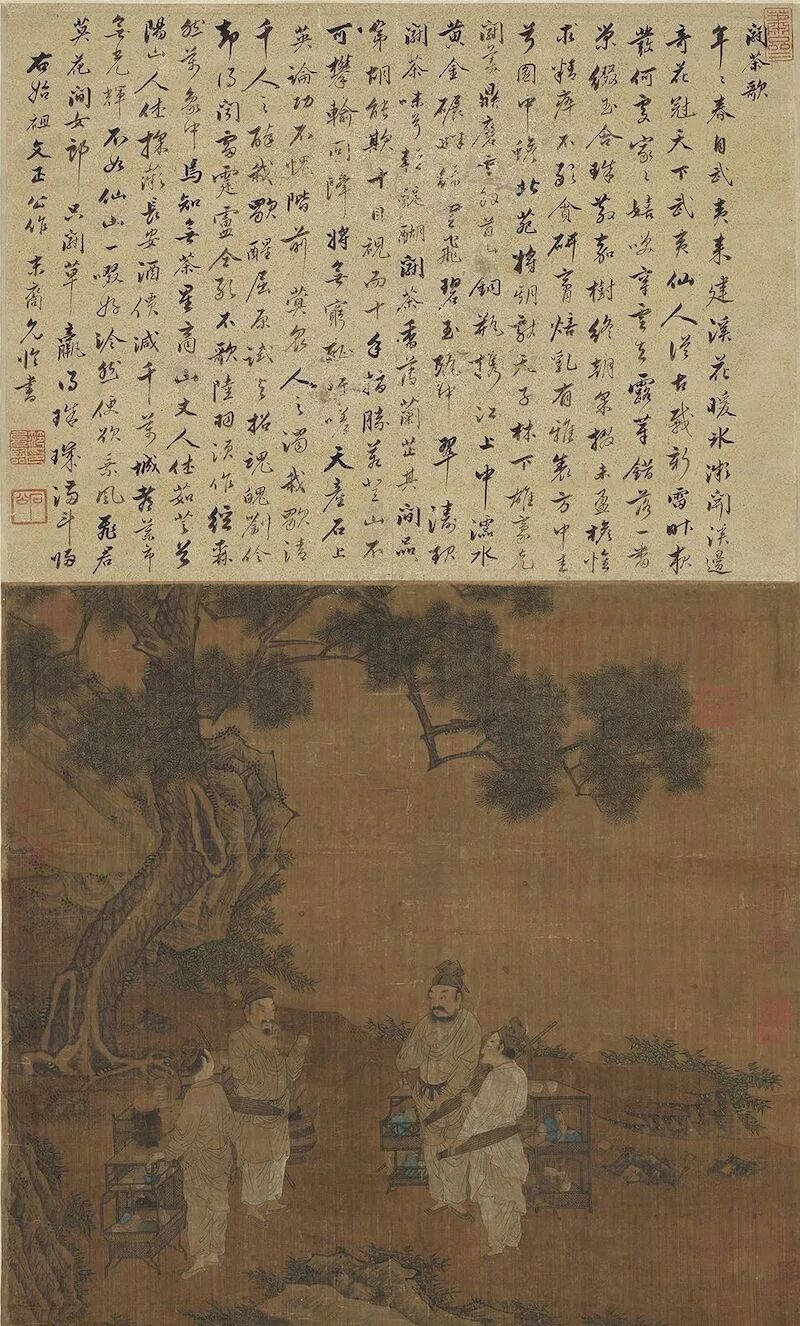 闘茶歌
年〻春自武夷來建溪花暖冰微開溪邊
奇花冠天下武夷仙人從古栽新雷昨夜
發何處家〻嬉笑穿雲去露芽錯落一番
榮綴玉含珠散嘉樹終朝采掇未盈襜惟
求精粹不敢貪研膏焙乳有雅製方中圭
兮圓中蟾北苑將期獻天子林下雄豪先
闘美鼎磨雲外首山銅瓶攜江上中濡水
黃金碾畔綠雲飛碧玉甌中翠濤起
闘茶味兮輕醍醐闘茶香薄蘭芷其間品
第胡能欺十目視而十手指勝若登山不
可攀輸同降將無窮恥吁嗟天產石上
英論功不愧階前蓂衆人之濁我歌清
千人之醉我歌醒屈原試與招魂魄劉伶
却得聞雷霆盧仝敢不歌陸羽須作經森
然萬象中焉知無茶星商山丈人休茹芝首
陽山人休採薇長安酒價減千萬城都藥市
無光輝不如仙山一啜好泠然便欲乘風飛君
莫花間女郎只闘草贏得珠璣滿斗歸
右始祖文正公作末裔允臨書